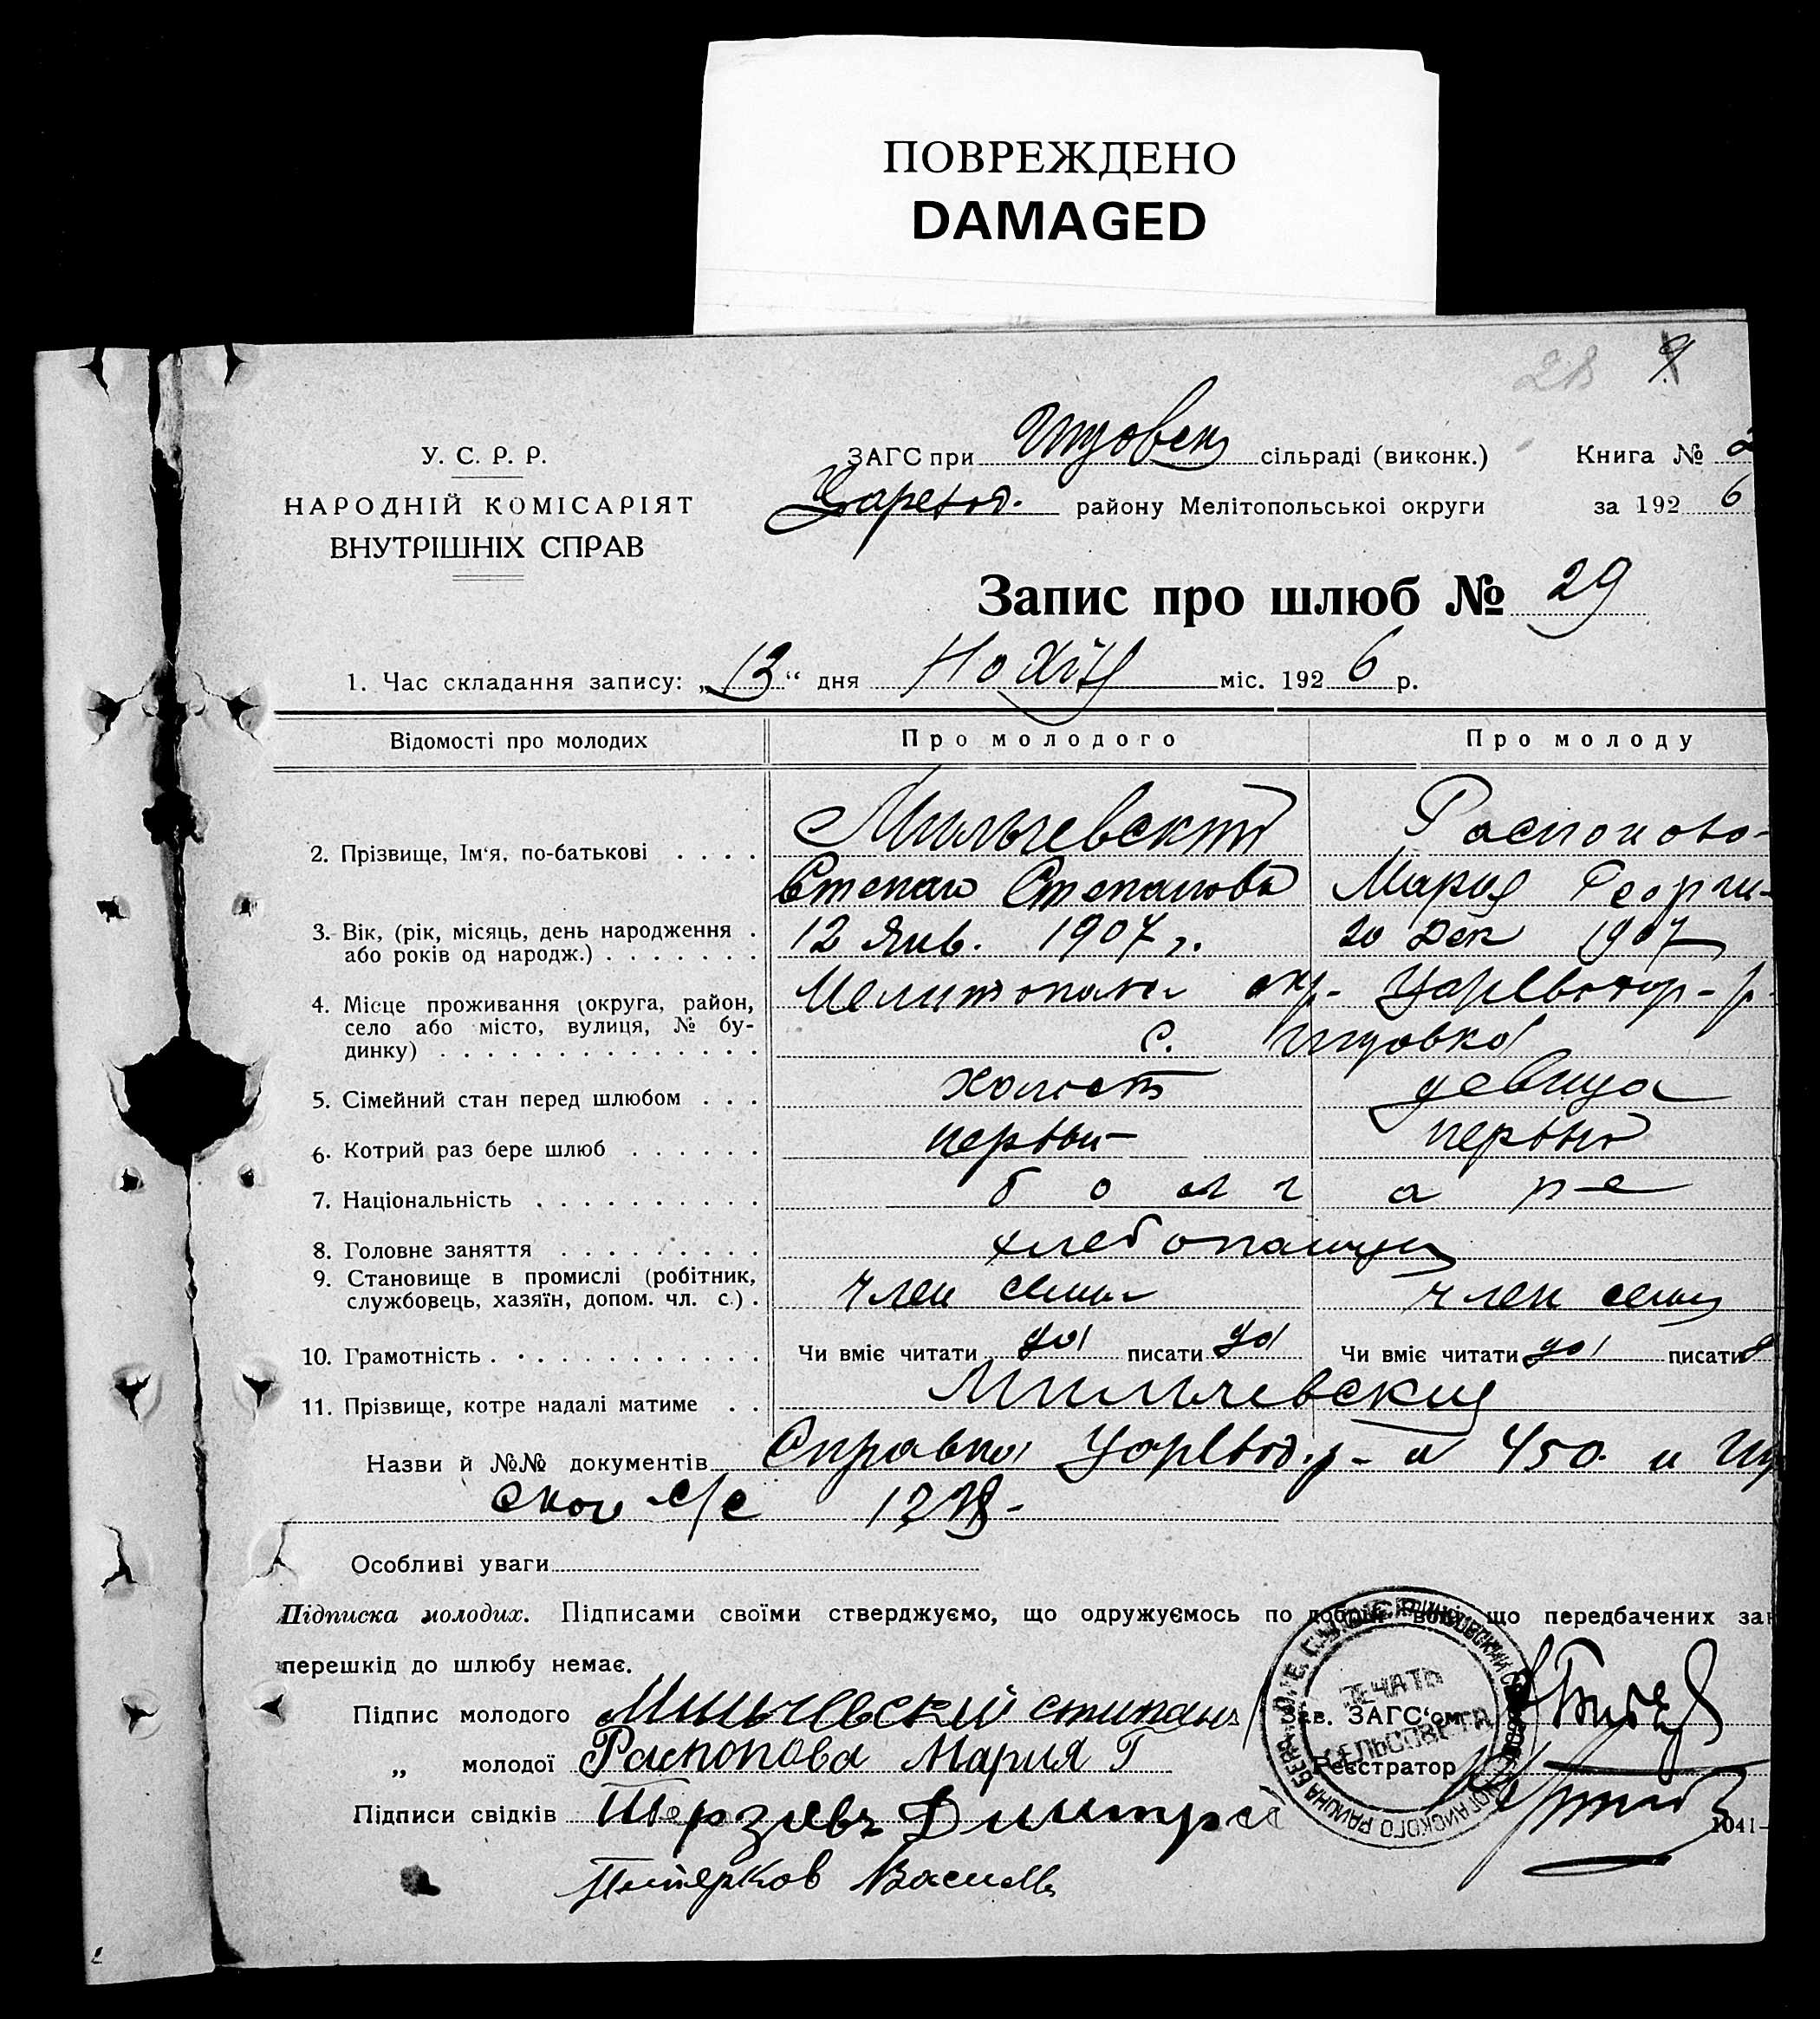 ПОВРЕЖДЕНО
DAMAGED
28
У. С. Р. Р.
НАРОДНІЙ КОМІСАРІЯТ
ВНУТРІШНІХ СПРАВ
ЗАГС при сільраді (виконк.) Книга № 2
Царевод. району Мелітопольскоі округи за 192 6
Запис про шлюб № 29
1. Час складання запису: „ 13 “ дня міс. 192 6 р.
Відомості про молодих Про молодого Про молоду
2. Прізвище, Ім‘я, по-батькові Мильчевский Распопова
Степан Степанов Мария Георги-
3. Вік, (рік, місяць, день народження 12 Янв. 1907 г. 20 Дек 1907
або років од народж.)
4. Місце проживання (округа, район, Мелитопольс окр- Царевовод-р-
село або місто, вулиця, № бу- с.
динку)
5. Сімейний стан перед шлюбом холост девица
6. Котрий раз бере шлюб первый первый
7. Національність болгаре
8. Головне заняття хлебопашцы
9. Становище в промислі (робітник, член семьи член семьи
службовець, хазяїн, допом. чл. с.)
10. Грамотність Чи вміє читати да писати да Чи вміє читати да писати
11. Прізвище, котре надалі матиме Мильчевский
Назви й №№ документів Справка Царевод. р- 450. и
ског с/с
Особливі уваги
Підписка молодих. Підписами своїми стверджуємо, що одружуємось по добрій волі що передбачених зак
перешкід до шлюбу немає.
Підпис молодого Мильчевский стипань Зав. ЗАГС‘ом
„ молодої Распопова Мария Г Реєстратор
ПЕЧАТЬ
СЕЛЬСОВЕТА
Підписи свідків Терзиевъ Димтри 1041-
Питерков Василь